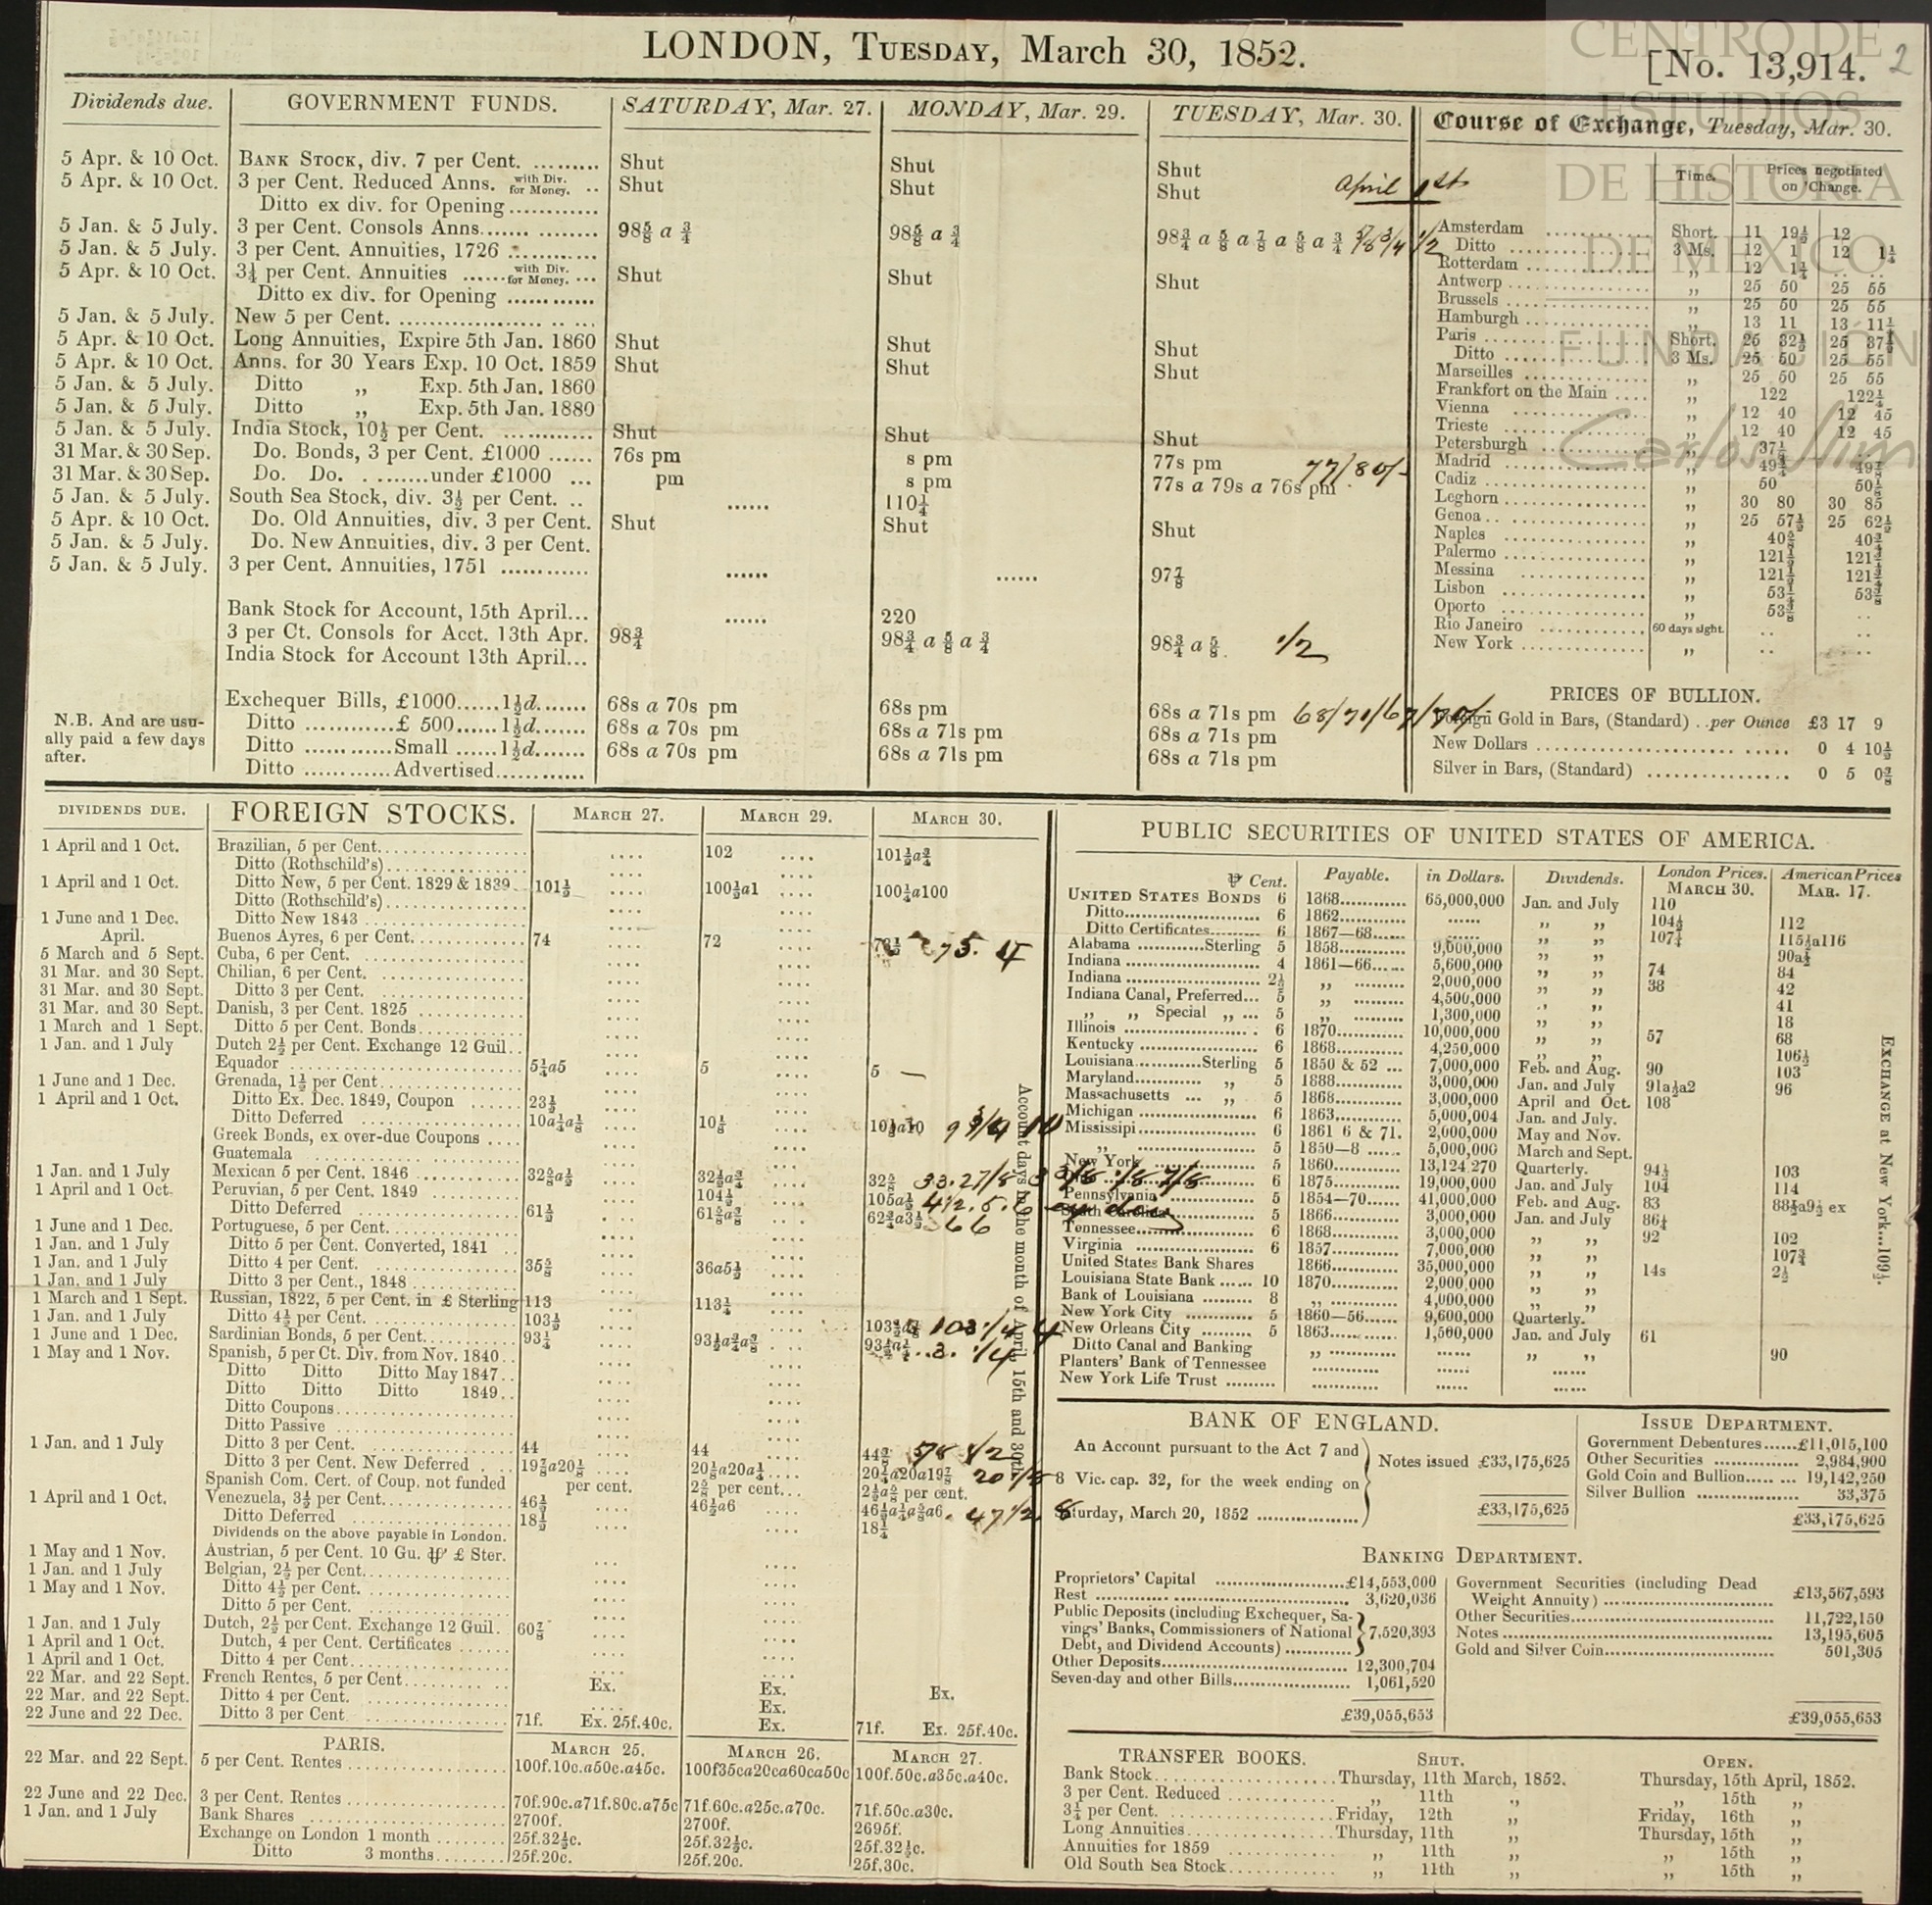 LONDON, TUESDAY, March 30, 1852.
[No. 13,914.
2
CENTRO DE
ESTUDIOS
DE HISTORIA
DE MEXICO
FUNDACIÓN
Carlos Slim
Dividends due. GOVERNMENT FUNDS. SATURDAY, Mar. 27. MONDAY, Mar. 29. TUESDAY, Mar. 30.
5 Apr. & 10 Oct. BANK STOCK, div. 7 per Cent. .......... Shut Shut Shut
5 Apr. & 10 Oct. 3 per Cent. Reduced Anns. with Div. for Money. .. Shut Shut Shut April 1st
Ditto ex div. for Opening ............
5 Jan. & 5 July. 3 per Cent. Consols Anns....... ......... 98⅝ a ¾ 98⅝ a ¾ 98¾ a ⅝ a ⅞ a ⅝ a ¾
5 Jan. & 5 July. 3 per Cent. Annuities, 1726 ............
5 Apr. & 10 Oct. 3¼ per Cent. Annuities ...... with Div. for Money. ... Shut Shut Shut
Ditto ex div. for Opening ............
5 Jan. & 5 July. New 5 per Cent. ..................... .. ...
5 Apr. & 10 Oct. Long Annuities, Expire 5th Jan. 1860 Shut Shut Shut
5 Apr. & 10 Oct. Anns. for 30 Years Exp. 10 Oct. 1859 Shut Shut Shut
5 Jan. & 5 July. Ditto „ Exp. 5th Jan. 1860
5 Jan. & 5 July. Ditto „ Exp. 5th Jan. 1880
5 Jan. & 5 July. India Stock, 10½ per Cent. ............ Shut Shut Shut
31 Mar. & 30 Sep. Do. Bonds, 3 per Cent. £1000 ...... 76s pm s pm 77s pm 77/80/-
31 Mar. & 30 Sep. Do. Do. .........under £1000 ... pm s pm 77s a 79s a 76s pm
5 Jan. & 5 July. South Sea Stock, div. 3½ per Cent. .. ...... 110¼
5 Apr. & 10 Oct. Do. Old Annuities, div. 3 per Cent. Shut Shut Shut
5 Jan. & 5 July. Do. New Annuities, div. 3 per Cent.
5 Jan. & 5 July. 3 per Cent. Annuities, 1751 ............ ...... ...... 97⅞
Bank Stock for Account, 15th April... ...... 220
3 per Ct. Consols for Acct. 13th Apr. 98¾ 98¾ a ⅝ a ¾ 98¾ a ⅝. 1/2
India Stock for Account 13th April...
Exchequer Bills, £1000......1½d....... 68s a 70s pm 68s pm 68s a 71s pm
Ditto ............£ 500......1½d....... 68s a 70s pm 68s a 71s pm 68s a 71s pm
Ditto ............Small ......1½d....... 68s a 70s pm 68s a 71s pm 68s a 71s pm
Ditto ............Advertised............
N.B. And are usu-
ally paid a few days
after.
Course of Exchange, Tuesday, Mar. 30.
Time. Prices negotiated on 'Change.
Amsterdam ............ Short. 11 19½ 12
Ditto ............ 3 Ms. 12 1 12 1¼
Rotterdam ............ „ 12 1¼ .. ..
Antwerp ............ „ 25 50 25 55
Brussels ............ „ 25 50 25 55
Hamburgh ............ „ 13 11 13 11½
Paris ............ Short. 25 32½ 25 37½
Ditto ............ 3 Ms. 25 50 25 55
Marseilles ............ „ 25 50 25 55
Frankfort on the Main .... „ 122 122¼
Vienna ............ „ 12 40 12 45
Trieste ............ „ 12 40 12 45
Petersburgh ............ „ 37½ ..
Madrid ............ „ 49¾ 49⅞
Cadiz ............ „ 50 50⅛
Leghorn ............ „ 30 80 30 85
Genoa ............ „ 25 57½ 25 62½
Naples ............ „ 40⅝ 40¾
Palermo ............ „ 121½ 121¾
Messina ............ „ 121½ 121¾
Lisbon ............ „ 53¼ 53⅜
Oporto ............ „ 53⅜ ..
Rio Janeiro ............ 60 days sight. .. ..
New York ............ „ .. ..
PRICES OF BULLION.
Foreign Gold in Bars, (Standard) .. per Ounce £3 17 9
New Dollars ............ 0 4 10½
Silver in Bars, (Standard) ............ 0 5 0⅜
DIVIDENDS DUE. FOREIGN STOCKS. MARCH 27. MARCH 29. MARCH 30.
1 April and 1 Oct. Brazilian, 5 per Cent. .... 102 101½a¾
Ditto (Rothschild's)
1 April and 1 Oct. Ditto New, 5 per Cent. 1829 & 1839 101½ 100½a1 100¼a100
Ditto (Rothschild's)
1 June and 1 Dec. Ditto New 1843
April. Buenos Ayres, 6 per Cent. 74 72 75. 4
5 March and 5 Sept. Cuba, 6 per Cent.
31 Mar. and 30 Sept. Chilian, 6 per Cent.
31 Mar. and 30 Sept. Ditto 3 per Cent.
31 Mar. and 30 Sept. Danish, 3 per Cent. 1825
1 March and 1 Sept. Ditto 5 per Cent. Bonds
1 Jan. and 1 July Dutch 2½ per Cent. Exchange 12 Guil.
Equador 5¼a5 5 5
1 June and 1 Dec. Grenada, 1½ per Cent.
1 April and 1 Oct. Ditto Ex. Dec. 1849, Coupon 23½
Ditto Deferred 10a¼a⅛ 10⅛ 9 3/4 10
Greek Bonds, ex over-due Coupons
Guatemala
1 Jan. and 1 July Mexican 5 per Cent. 1846 32⅝a½ 32½a¾ 32⅝
1 April and 1 Oct. Peruvian, 5 per Cent. 1849 104½ 105a½
Ditto Deferred 61½ 61⅝a⅜ 62¾a3½ 66
1 June and 1 Dec. Portuguese, 5 per Cent.
1 Jan. and 1 July Ditto 5 per Cent. Converted, 1841
1 Jan. and 1 July Ditto 4 per Cent. 35⅝ 36a5½
1 Jan. and 1 July Ditto 3 per Cent., 1848
1 March and 1 Sept. Russian, 1822, 5 per Cent. in £ Sterling 113 113¼
1 Jan. and 1 July Ditto 4½ per Cent. 103½ 103 1/4 4
1 June and 1 Dec. Sardinian Bonds, 5 per Cent. 93¼ 93½a¾a⅜ 93½a¼
1 May and 1 Nov. Spanish, 5 per Ct. Div. from Nov. 1840
Ditto Ditto Ditto May 1847
Ditto Ditto Ditto 1849
Ditto Coupons
Ditto Passive
1 Jan. and 1 July Ditto 3 per Cent. 44 44 44⅜
Ditto 3 per Cent. New Deferred 19⅞a20⅛ 20⅛a20a¼ 20¼a20a19⅞
Spanish Com. Cert. of Coup. not funded per cent. 2⅝ per cent. 2½a⅝ per cent.
1 April and 1 Oct. Venezuela, 3½ per Cent. 46½ 46½a6 46½a¼a⅝a6. 47 1/2 8
Ditto Deferred 18½ 18¼
Dividends on the above payable in London.
1 May and 1 Nov. Austrian, 5 per Cent. 10 Gu. ℔ £ Ster.
1 Jan. and 1 July Belgian, 2½ per Cent.
1 May and 1 Nov. Ditto 4½ per Cent.
Ditto 5 per Cent.
1 Jan. and 1 July Dutch, 2½ per Cent. Exchange 12 Guil. 60⅞
1 April and 1 Oct. Dutch, 4 per Cent. Certificates
1 April and 1 Oct. Ditto 4 per Cent.
22 Mar. and 22 Sept. French Rentes, 5 per Cent. Ex. Ex. Ex.
22 Mar. and 22 Sept. Ditto 4 per Cent. .... Ex.
22 June and 22 Dec. Ditto 3 per Cent. 71f. Ex. 25f.40c. Ex. 71f. Ex. 25f.40c.
PARIS. MARCH 25. MARCH 26. MARCH 27.
22 Mar. and 22 Sept. 5 per Cent. Rentes 100f.10c.a50c.a45c. 100f35ca20ca60ca50c 100f.50c.a35c.a40c.
22 June and 22 Dec. 3 per Cent. Rentes 70f.90c.a71f.80c.a75c 71f.60c.a25c.a70c. 71f.50c.a30c.
1 Jan. and 1 July Bank Shares 2700f. 2700f. 2695f.
Exchange on London 1 month 25f.32½c. 25f.32½c. 25f.32½c.
Ditto 3 months 25f.20c. 25f.20c. 25f.30c.
Account days in the month of April, 15th and 30th.
PUBLIC SECURITIES OF UNITED STATES OF AMERICA.
℔ Cent. Payable. in Dollars. Dividends. London Prices. MARCH 30. American Prices MAR. 17.
UNITED STATES BONDS 6 1868 65,000,000 Jan. and July 110
Ditto 6 1862 ...... „ „ 104½ 112
Ditto Certificates 6 1867—68 ...... „ „ 107¼ 115½a116
Alabama Sterling 5 1858 9,000,000 „ „ 90a½
Indiana 4 1861—66 5,600,000 „ „ 74 84
Indiana 2½ „ 2,000,000 „ „ 38 42
Indiana Canal, Preferred 5 „ 4,500,000 „ „ 41
„ „ Special „ 5 „ 1,300,000 „ „ 18
Illinois 6 1870 10,000,000 „ „ 57 68
Kentucky 6 1868 4,250,000 „ „ 106½
Louisiana Sterling 5 1850 & 52 7,000,000 Feb. and Aug. 90 103
Maryland „ 5 1888 3,000,000 Jan. and July 91a½a2 96
Massachusetts „ 5 1868 3,000,000 April and Oct. 108
Michigan 6 1863 5,000,004 Jan. and July.
Mississipi 6 1861 6 & 71. 2,000,000 May and Nov.
„ 5 1850—8 5,000,000 March and Sept.
New York 5 1860 13,124,270 Quarterly. 94½ 103
6 1875 19,000,000 Jan. and July 104 114
Pennsylvania 5 1854—70 41,000,000 Feb. and Aug. 83 88½a9½ ex
South Carolina 5 1866 3,000,000 Jan. and July 86¼
Tennessee 6 1868 3,000,000 „ „ 92 102
Virginia 6 1857 7,000,000 „ „ 107¾
United States Bank Shares 1866 35,000,000 „ „ 14s 2½
Louisiana State Bank 10 1870 2,000,000 „ „
Bank of Louisiana 8 „ 4,000,000 „ „
New York City 5 1860—56 9,600,000 Quarterly.
New Orleans City 5 1863 1,500,000 Jan. and July 61
Ditto Canal and Banking „ ...... „ „ 90
Planters' Bank of Tennessee ...... ......
New York Life Trust ...... ......
EXCHANGE at New York...109½.
BANK OF ENGLAND.
An Account pursuant to the Act 7 and
8 Vic. cap. 32, for the week ending on
Saturday, March 20, 1852
Notes issued £33,175,625
£33,175,625
ISSUE DEPARTMENT.
Government Debentures......£11,015,100
Other Securities ............ 2,984,900
Gold Coin and Bullion...... ... 19,142,250
Silver Bullion ............ 33,375
£33,175,625
BANKING DEPARTMENT.
Proprietors' Capital ............£14,553,000
Rest ............ 3,620,036
Public Deposits (including Exchequer, Sa-
vings' Banks, Commissioners of National
Debt, and Dividend Accounts) ............ 7,520,393
Other Deposits............ 12,300,704
Seven-day and other Bills............ 1,061,520
£39,055,653
Government Securities (including Dead
Weight Annuity) ............ £13,567,593
Other Securities............ 11,722,150
Notes ............ 13,195,605
Gold and Silver Coin............ 501,305
£39,055,653
TRANSFER BOOKS. SHUT. OPEN.
Bank Stock............Thursday, 11th March, 1852. Thursday, 15th April, 1852.
3 per Cent. Reduced ............ „ 11th „ „ 15th „
3¼ per Cent. ............Friday, 12th „ Friday, 16th „
Long Annuities............Thursday, 11th „ Thursday, 15th „
Annuities for 1859 ............ „ 11th „ „ 15th „
Old South Sea Stock............ „ 11th „ „ 15th „